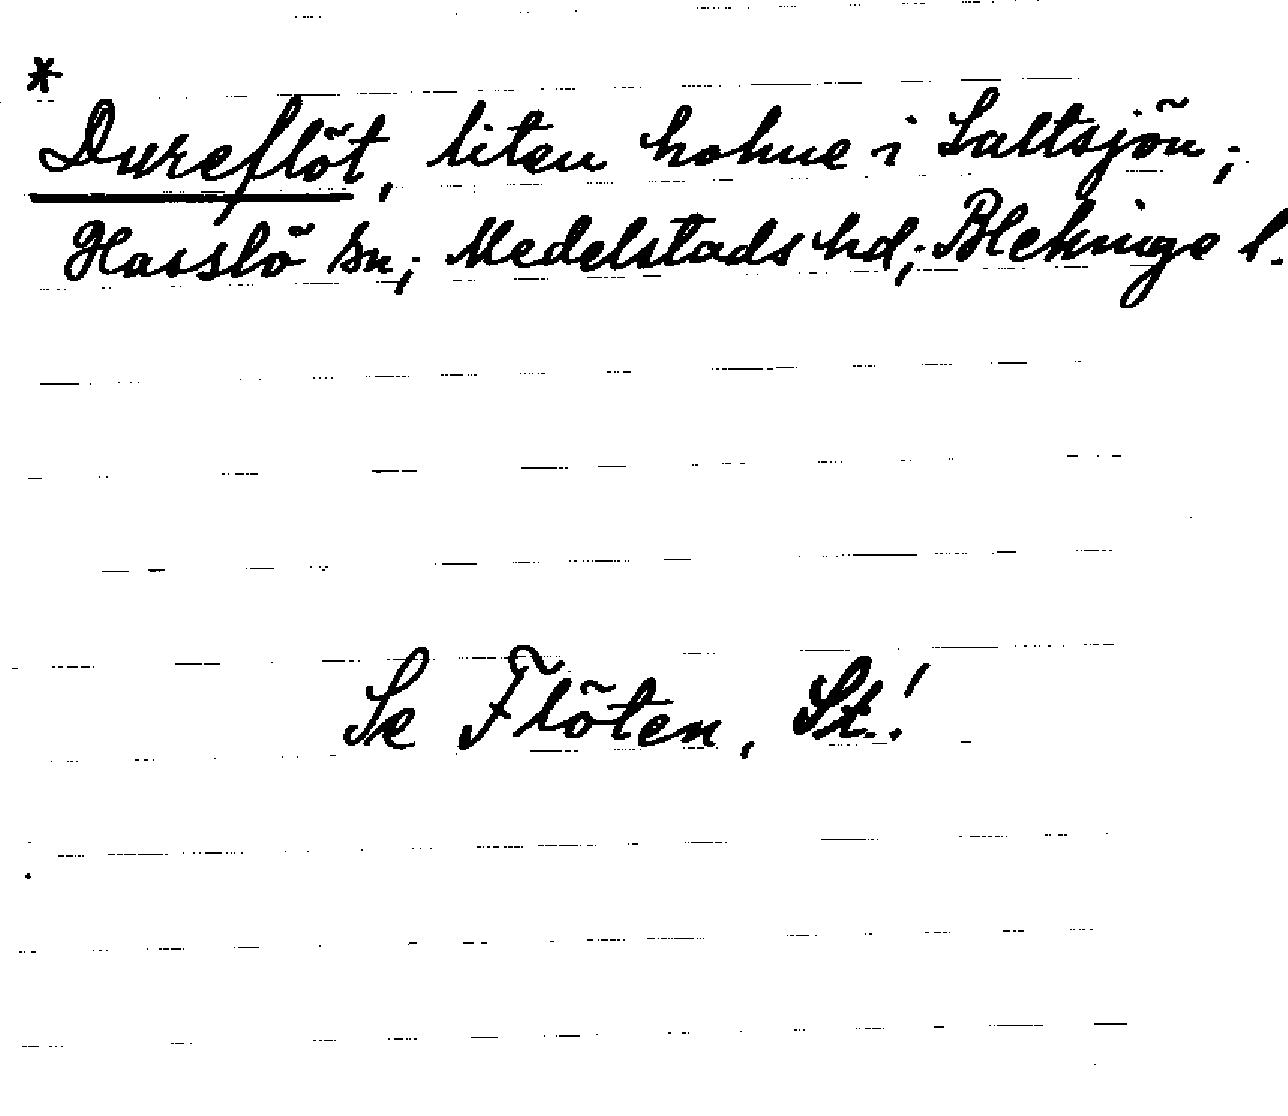 *
Dureflöt, liten holme i Saltsjön;
Hasslö sn; Medelstads hd; Blekinge l.
Se Flöten, St.!